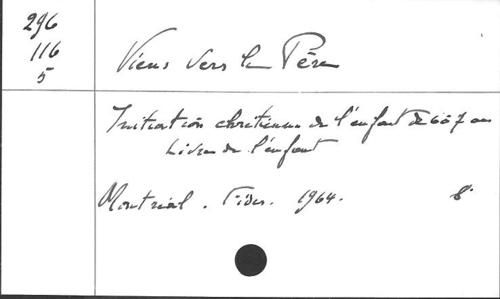 296
116
5
Viens vers le Père
Initiation chrétienne de l'enfant de 6 à 7 ans
Livre de l'enfant
Montréal. Fides. 1964. 8°